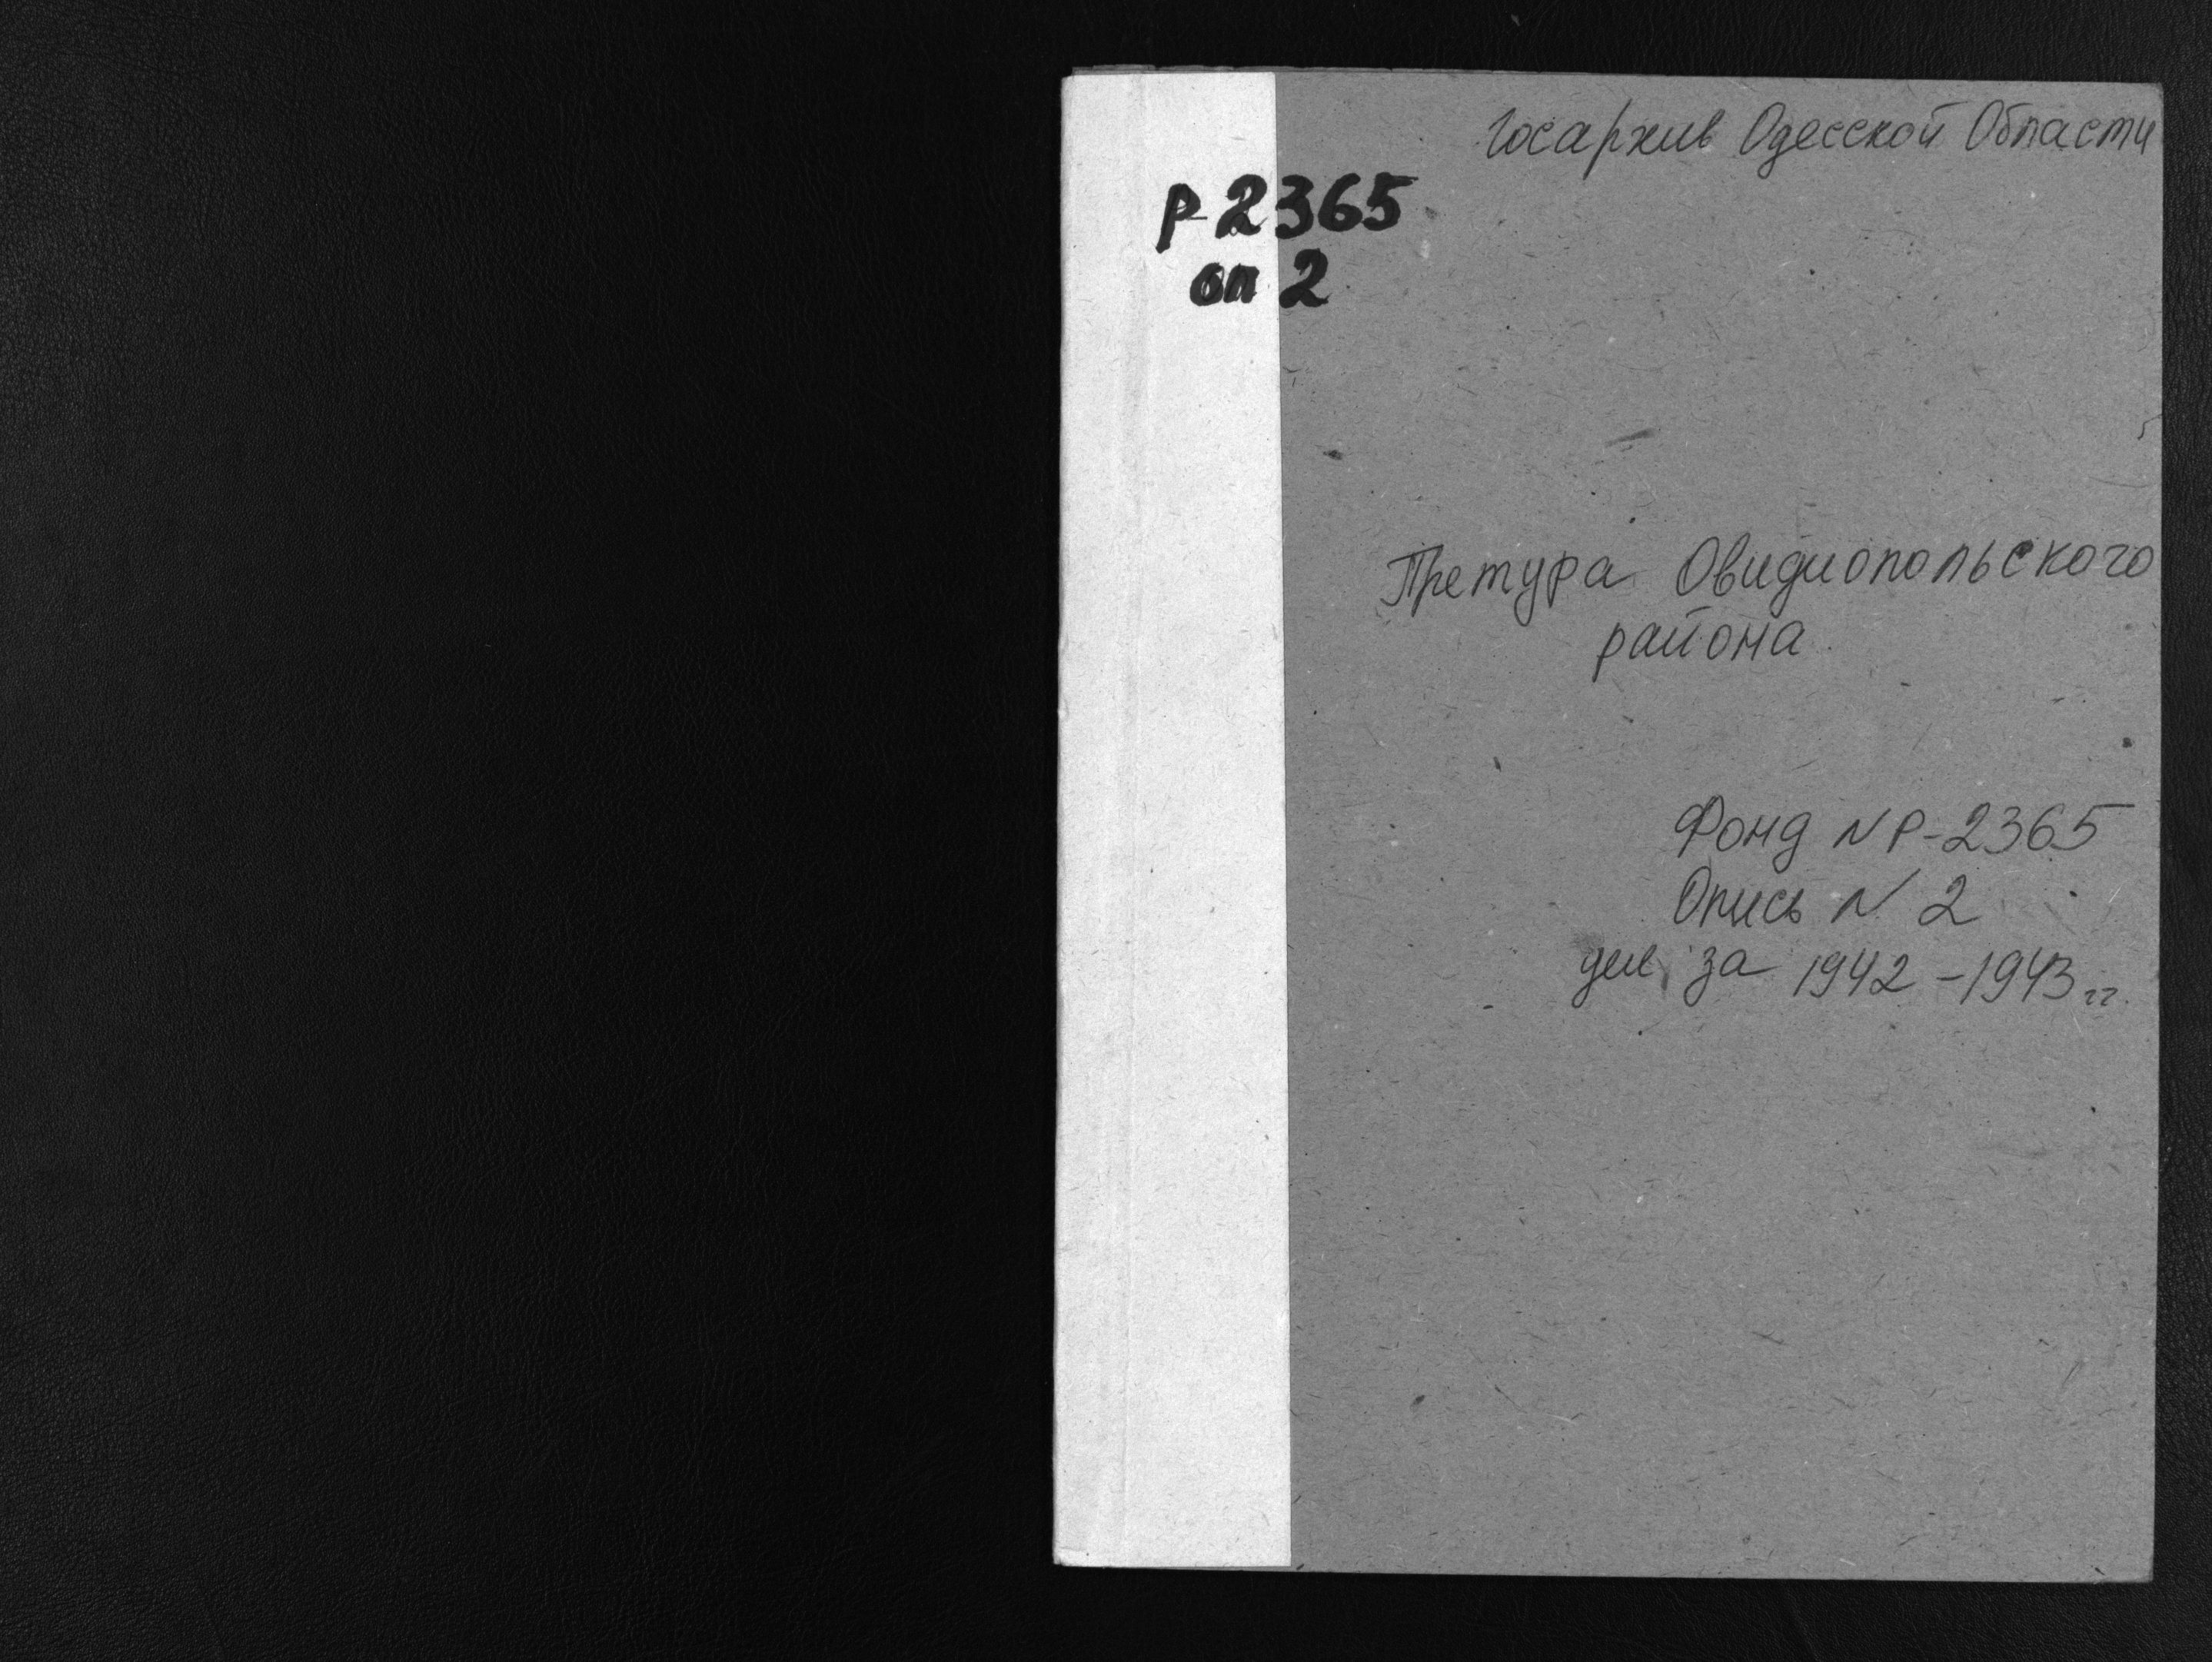 Госархив Одесской Области
Р-2365
оп 2
Претура Овидиопольского
района
Фонд N Р-2365
Опись N 2
дел за 1942-1943 гг.